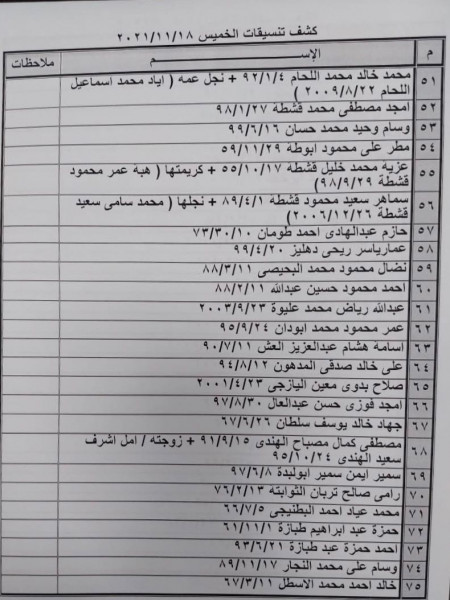 كشف تنسيقات الخميس ٢٠٢١/١١/١٨
م الإســـــــم ملاحظات
٥١ محمد خالد محمد اللحام ٩٢/١/٤ + نجل عمه ( اياد محمد اسماعيل
اللحام ٢٠٠٩/٨/٢٢ )
٥٢ امجد مصطفى محمد قشطة ٩٨/١/٢٧
٥٣ وسام وحيد محمد حسان ٩٩/٦/١٦
٥٤ مطر على محمود ابوطة ٥٩/١١/٢٩
٥٥ عزيه محمد خليل قشطه ٥٥/١٠/١٧ + كريمتها ( هبة عمر محمود
قشطة ٩٨/٩/٢٩)
٥٦ سماهر سعيد محمود قشطة ٨٩/٤/١ + نجلها ( محمد سامى سعيد
قشطة ٢٠٠٦/١٢/٢٦)
٥٧ حازم عبدالهادى احمد طومان ٧٣/٣٠/١٠
٥٨ عمارياسر ريحى دهليز ٩٩/٤/٢٠
٥٩ نضال محمود محمد البحيصى ٨٨/٣/١١
٦٠ احمد محمود حسين عبدالله ٨٨/٢/١١
٦١ عبدالله رياض محمد عليوة ٢٠٠٣/٩/٢٣
٦٢ عمر محمود محمد ابودان ٩٥/٩/٢٤
٦٣ اسامه هشام عبدالعزيز العش ٩٠/٧/١١
٦٤ على خالد صدقى المدهون ٩٤/٨/١٢
٦٥ صلاح بدوى معين اليازجى ٢٠٠١/٤/٢٣
٦٦ امجد فوزى حسن عبدالعال ٩٧/٨/٣٠
٦٧ جهاد خالد يوسف سلطان ٦٧/٦/٢٦
٦٨ مصطفى كمال مصباح الهندى ٩١/٩/١٥ + زوجته / امل اشرف
سعيد الهندى ٩٥/١٠/٢٤
٦٩ سمير ايمن سمير ابولبدة ٩٧/٦/٨
٧٠ رامى صالح تربان الثوابته ٧٦/٢/١٣
٧١ محمد عياد احمد البطنيجى ٦٦/٧/٥
٧٢ حمزة عبد ابراهيم طبازة ٦١/١١/١
٧٣ احمد حمزة عبد طبازة ٩٣/٦/٢١
٧٤ وسام على محمد النجار ٨٩/١١/١٧
٧٥ خالد احمد محمد الاسطل ٦٧/٣/١١